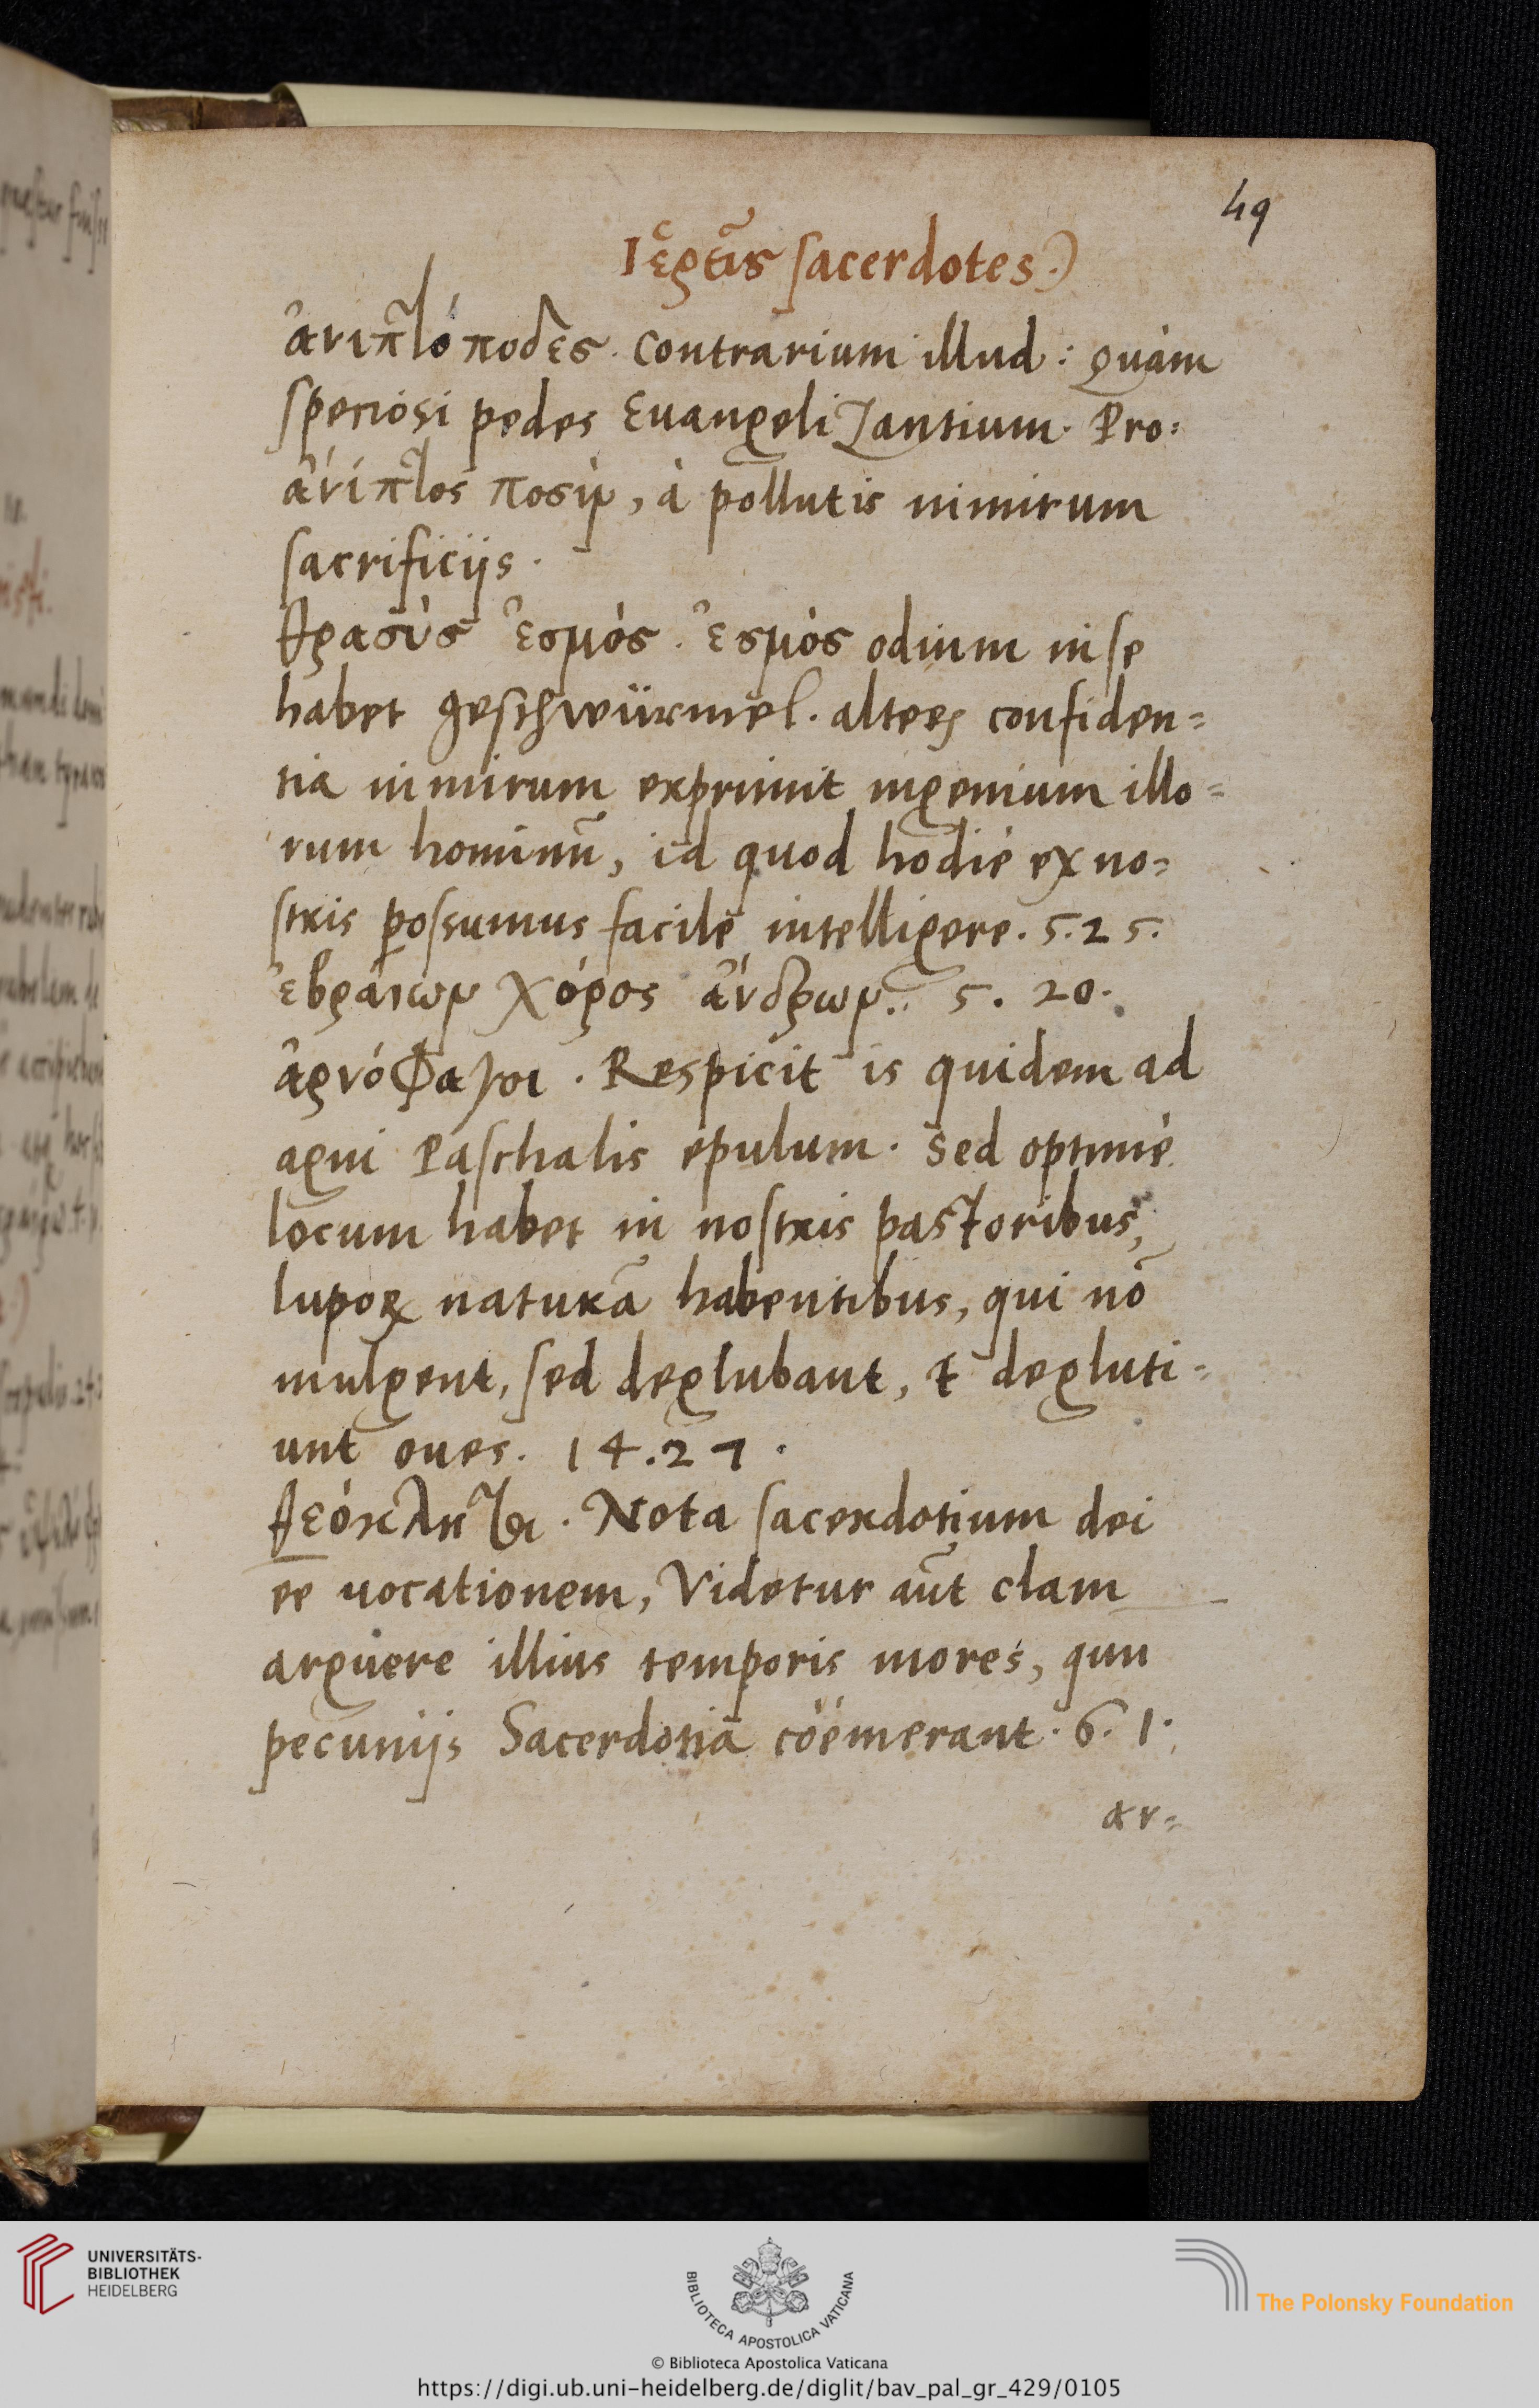 49
Ἱερεῖς sacerdotes.)
ἀνιπτόποδες. Contrarium illud: Quàm
speciosi pedes Euangelizantium. Pro:
ἀνίπτοις ποσὶν, à pollutis nimirum
sacrificijs.
θρασὺς ἑσμός. ἑσμὸς odium in se
habet geschwürmel. alterȝ confiden=
tia nimirum exprimit ingenium illo=
rum hominũ, id quod hodiè ex no=
stris possumus facilè intelligere. 5.25.
ἑβραίων χόρος ἀνδρων. 5. 20.
ἀρνόφαγοι. Respicit is quidem ad
agni Paschalis epulum. Sed optimè
locum habet in nostris pastoribus,
lupoꝝ naturã habentibus, qui nõ
mulgent, sed deglubant, & degluti=
unt oues. 14.27.
θεόκλητοι. Nota sacerdotium dei
ee uocationem, Videtur aũt clam
arguere illius temporis mores, qui
pecunijs Sacerdotia coëmerant. 6. 1.
ar=
UNIVERSITÄTS-
BIBLIOTHEK
HEIDELBERG
BIBLIOTECA APOSTOLICA VATICANA
The Polonsky Foundation
© Biblioteca Apostolica Vaticana
https://digi.ub.uni-heidelberg.de/diglit/bav_pal_gr_429/0105